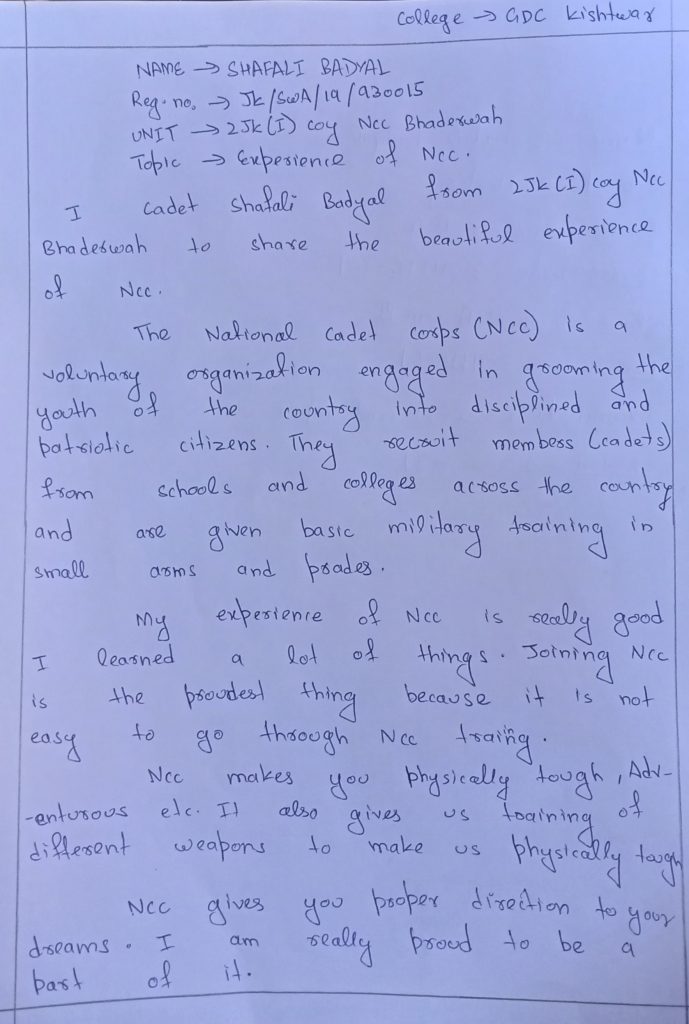 College → GDC Kishtwar
NAME → SHAFALI BADYAL
Reg. no. → JK/SWA/19/930015
UNIT → 2JK(I) coy Ncc Bhaderwah
Topic → Experience of Ncc.
I cadet Shafali Badyal from 2JK(I) coy Ncc
Bhaderwah to share the beautiful experience
of Ncc.
The National cadet corps (Ncc) is a
voluntary organization engaged in grooming the
youth of the country into disciplined and
patriotic citizens. They recruit members (cadets)
from schools and colleges across the country
and are given basic military training in
small arms and prades.
My experience of Ncc is really good
I learned a lot of things. Joining Ncc
is the proudest thing because it is not
easy to go through Ncc traing.
Ncc makes you physically tough, Adv-
-enturous etc. It also gives us training of
different weapons to make us physically tough
Ncc gives you proper direction to your
dreams. I am really proud to be a
part of it.